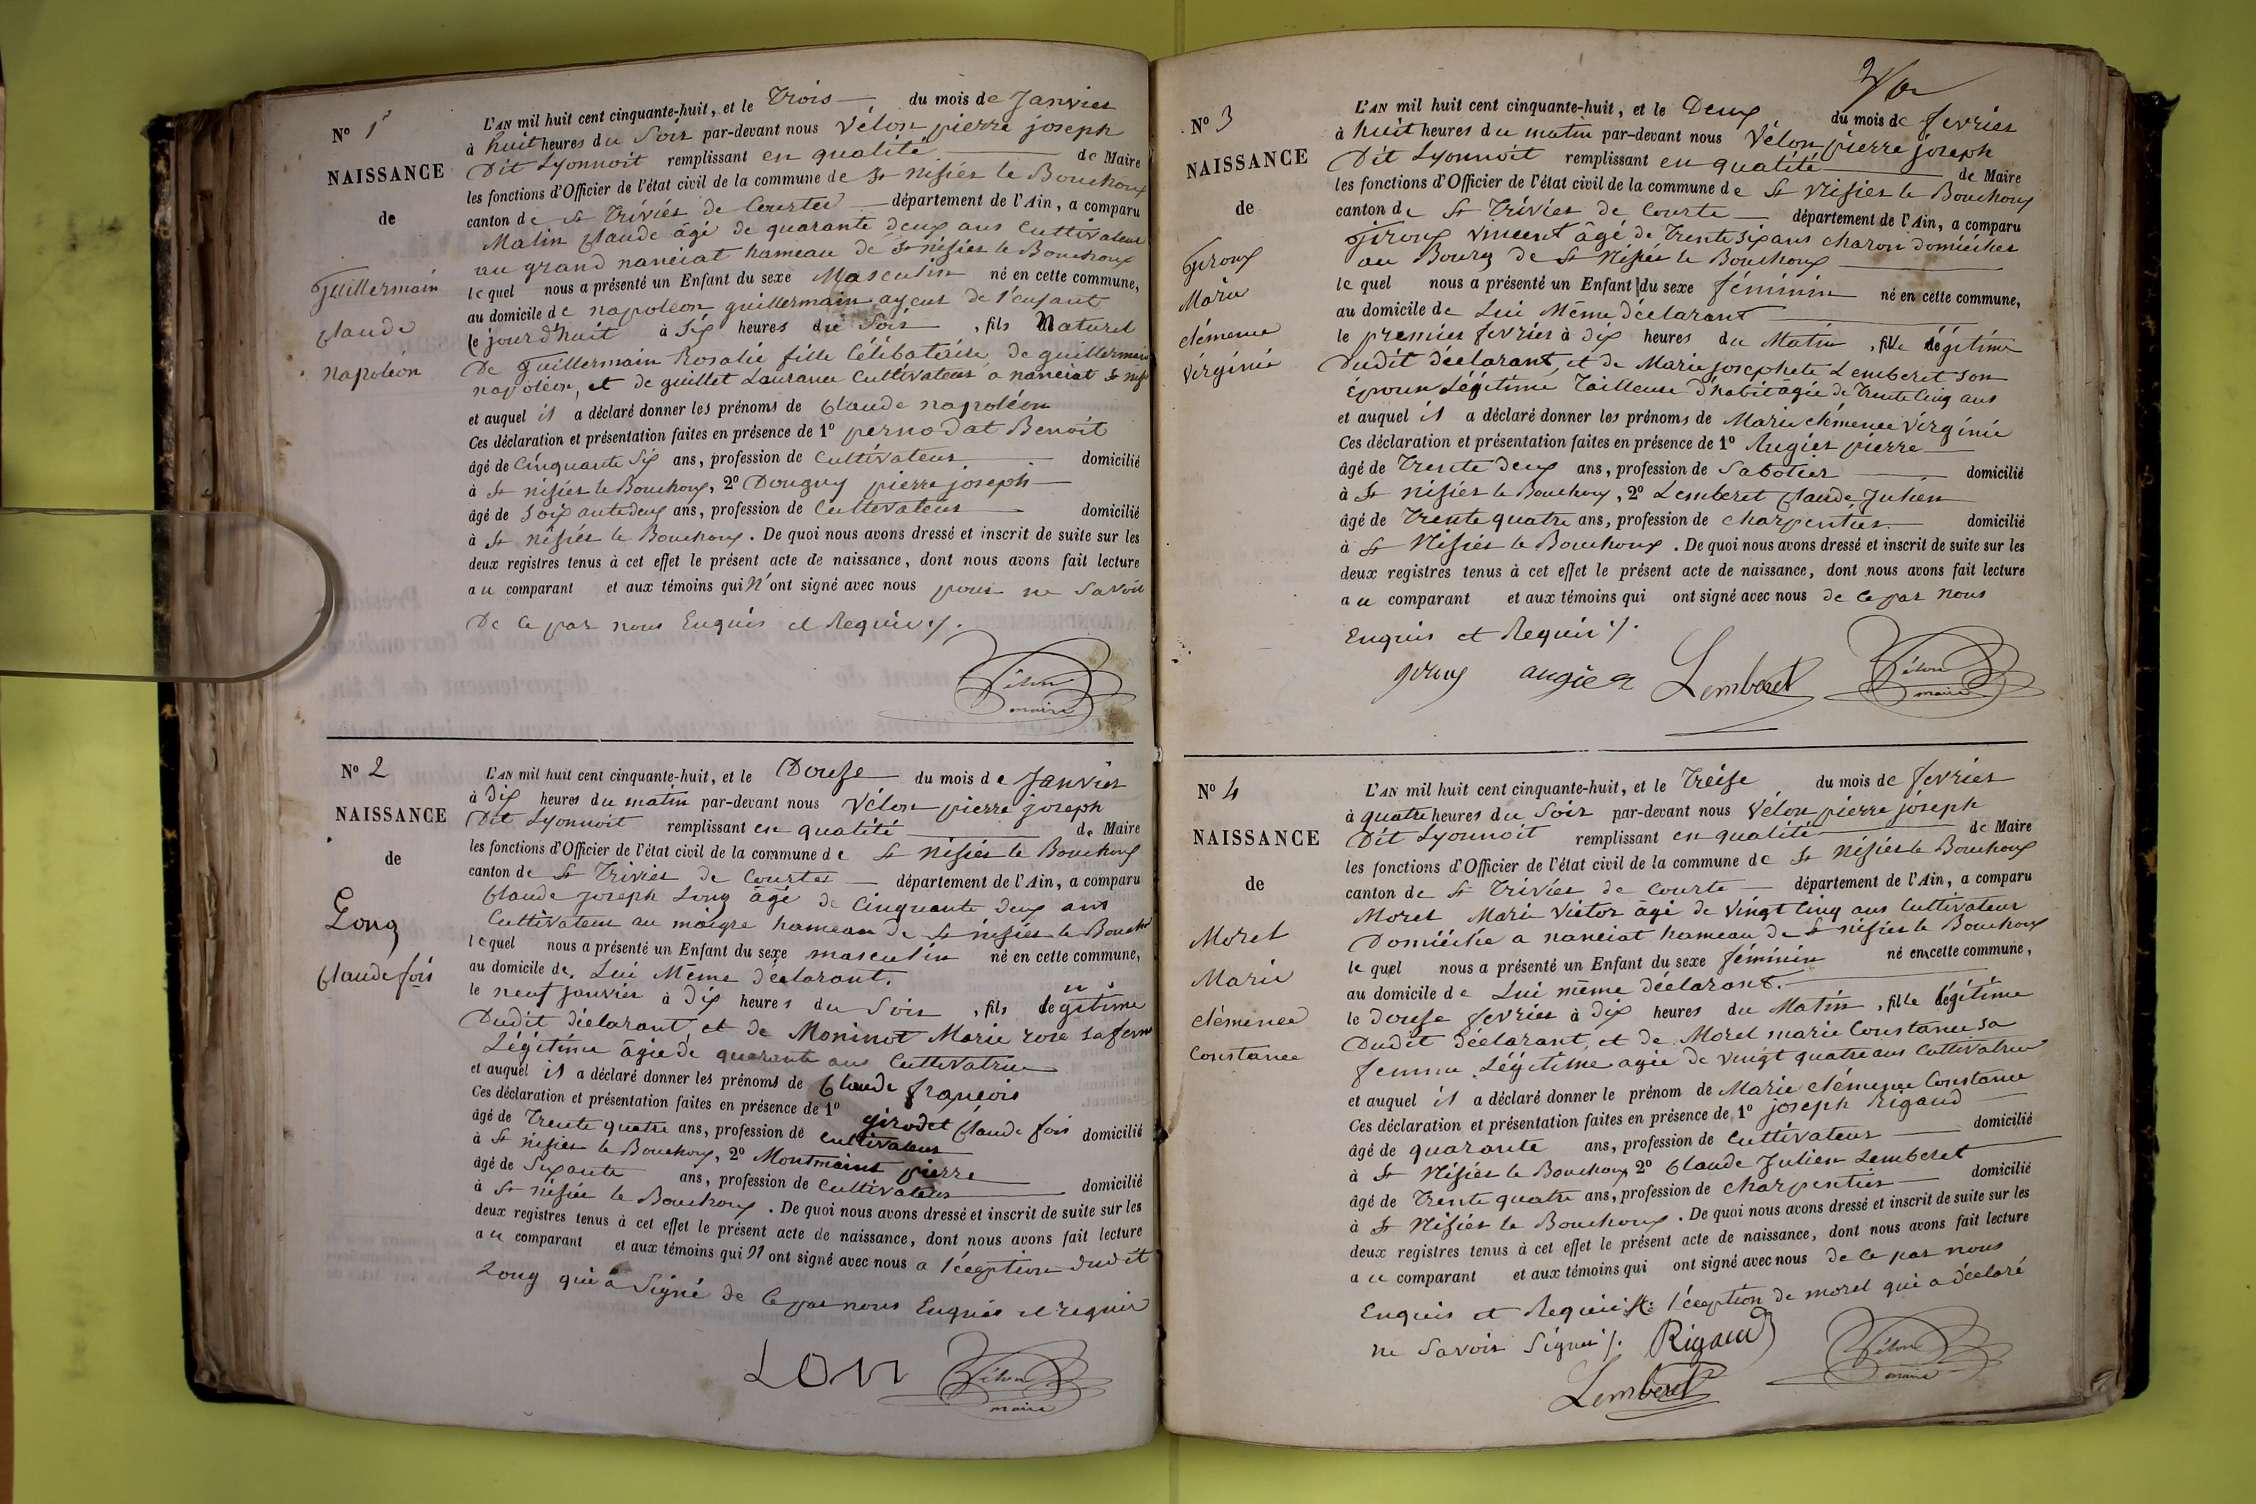 N° 1er
NAISSANCE
de
Guillermain
Claude
napoléon
L'AN mil huit cent cinquante-huit, et le Trois du mois de Janvier
à huit heures du Soir par-devant nous Vélon pierre joseph
Dit Lyonnoit remplissant en qualité de Maire
les fonctions d'Officier de l'état civil de la commune de St nisiér le Bouchoux
canton de St Triviér de Courtes département de l'Ain, a comparu
Matin Claude âgé de quarante deux ans Cultivateur
au grand nanciat hameau de St nisiér le Bouchoux
lequel nous a présenté un Enfant du sexe Masculin né en cette commune,
au domicile de napoléon guillermain ayeur de l'enfant
le jourd'huit à Six heures du Soir , fils Naturel
De Guillermain Rosalie fille Célibataire de guillermain
napoléon, et de guillet Laurance Cultivateur a nanciat St nisi
et auquel il a déclaré donner les prénoms de Claude napoléon
Ces déclaration et présentation faites en présence de 1° pernodat Benoit
âgé de Cinquante Six ans, profession de Cultivateur domicilié
à St nisiér le Bouchoux, 2° Douguy pierre joseph
âgé de Soixante deux ans, profession de Cultivateur domicilié
à St nisiér le Bouchoux. De quoi nous avons dressé et inscrit de suite sur les
deux registres tenus à cet effet le présent acte de naissance, dont nous avons fait lecture
au comparant et aux témoins qui N'ont signé avec nous pour ne Savoir
De ce par nous Enquis et Requis ./.
Vélon
maire
N° 2
NAISSANCE
de
Long
Claude fois
L'AN mil huit cent cinquante-huit, et le Douse du mois de Janvier
à Dix heures du matin par-devant nous Vélon pierre joseph
Dit Lyonnoit remplissant en qualité de Maire
les fonctions d'Officier de l'état civil de la commune de St nisiér le Bouchoux
canton de St Trivier de Courtes département de l'Ain, a comparu
Claude joseph Long âgé de Cinquante deux ans
Cultivateur au maigre hameau de St nisiér le Bouch
lequel nous a présenté un Enfant du sexe masculin né en cette commune,
au domicile de Lui Même déclarant.
le neuf janvier à Dix heures du Soir , fils légitime
Dudit déclarant et de Moninot Marie rose sa fem
Légitime âgée de quarente ans Cultivatrice
et auquel il a déclaré donner les prénoms de Claude françois
Ces déclaration et présentation faites en présence de 1° girodet Claude fois
âgé de Trente quatre ans, profession de Cultivateur domicilié
à St nisier le Bouchoux, 2° Montmaint pierre
âgé de Sixante ans, profession de Cultivateur domicilié
à St nisiér le Bouchoux. De quoi nous avons dressé et inscrit de suite sur les
deux registres tenus à cet effet le présent acte de naissance, dont nous avons fait lecture
au comparant et aux témoins qui N ont signé avec nous a l'éception dudit
Long qui a Signé de ce par nous Enquis et requis
LON
Vélon
maire
N° 3
NAISSANCE
de
Giroux
Marie
clémence
Virginie
L'AN mil huit cent cinquante-huit, et le Deux du mois de fevrier
à huit heures du matin par-devant nous Vélon pierre joseph
Dit Lyonnoit remplissant en qualité de Maire
les fonctions d'Officier de l'état civil de la commune de St Nisiér le Bouchoux
canton de St Triviér de Courte département de l'Ain, a comparu
Giroux vincent âgé de Trente Six ans charon domicilier
au Bourg de St Nisiér le Bouchoux
lequel nous a présenté un Enfant du sexe féminin né en cette commune,
au domicile de Lui Même déclarant
le premier fevrier à dix heures du Matin , fille légitime
Dudit déclarant, et de Marie josephete Lemberet son
Epouse Légitime Tailleuse D'habit âgée de Trente Cinq ans
et auquel il a déclaré donner les prénoms de Marie clémence Virginie
Ces déclaration et présentation faites en présence de 1° Augier pierre
âgé de Trente deux ans, profession de Sabotier domicilié
à St nisiér le Bouchoux, 2° Lemberet Claude Julien
âgé de Trente quatre ans, profession de charpentier domicilié
à St Nisiér le Bouchoux. De quoi nous avons dressé et inscrit de suite sur les
deux registres tenus à cet effet le présent acte de naissance, dont nous avons fait lecture
au comparant et aux témoins qui ont signé avec nous de ce par nous
Enquis et Requis ./.
giroux augier Lemberet Vélon
maire
N° 4
NAISSANCE
de
Morel
Marie
clémence
Constance
L'AN mil huit cent cinquante-huit, et le Treise du mois de fevrier
à quatre heures du Soir par-devant nous Vélon pierre joseph
Dit Lyonnoit remplissant en qualité de Maire
les fonctions d'Officier de l'état civil de la commune de St Nisiér le Bouchoux
canton de St Triviér de Courte département de l'Ain, a comparu
Morel Marie Victor âgé de Vingt Cinq ans Cultivateur
Domicilié a nanciat hameau de St nisiér le Bouchoux
lequel nous a présenté un Enfant du sexe féminin né en cette commune,
au domicile de Lui même déclarant.
le Douse fevrier à dix heures du Matin , fille légitime
Dudit déclarant, et de Morel marie Constance sa
femme Légitime agée de vingt quatre ans Cultivatrice
et auquel il a déclaré donner le prénom de Marie clémence Constance
Ces déclaration et présentation faites en présence de 1° joseph Rigaud
âgé de quarante ans, profession de Cultivateur domicilié
à St Nisiér le Bouchoux 2° Claude Julien Lemberet
âgé de Trente quatre ans, profession de charpentier domicilié
à St Nisiér le Bouchoux. De quoi nous avons dressé et inscrit de suite sur les
deux registres tenus à cet effet le présent acte de naissance, dont nous avons fait lecture
au comparant et aux témoins qui ont signé avec nous de ce par nous
Enquis et Requis l'éception de morel qui a déclaré
ne Savoir Signer ./. Rigaud
Lemberet
Vélon
maire